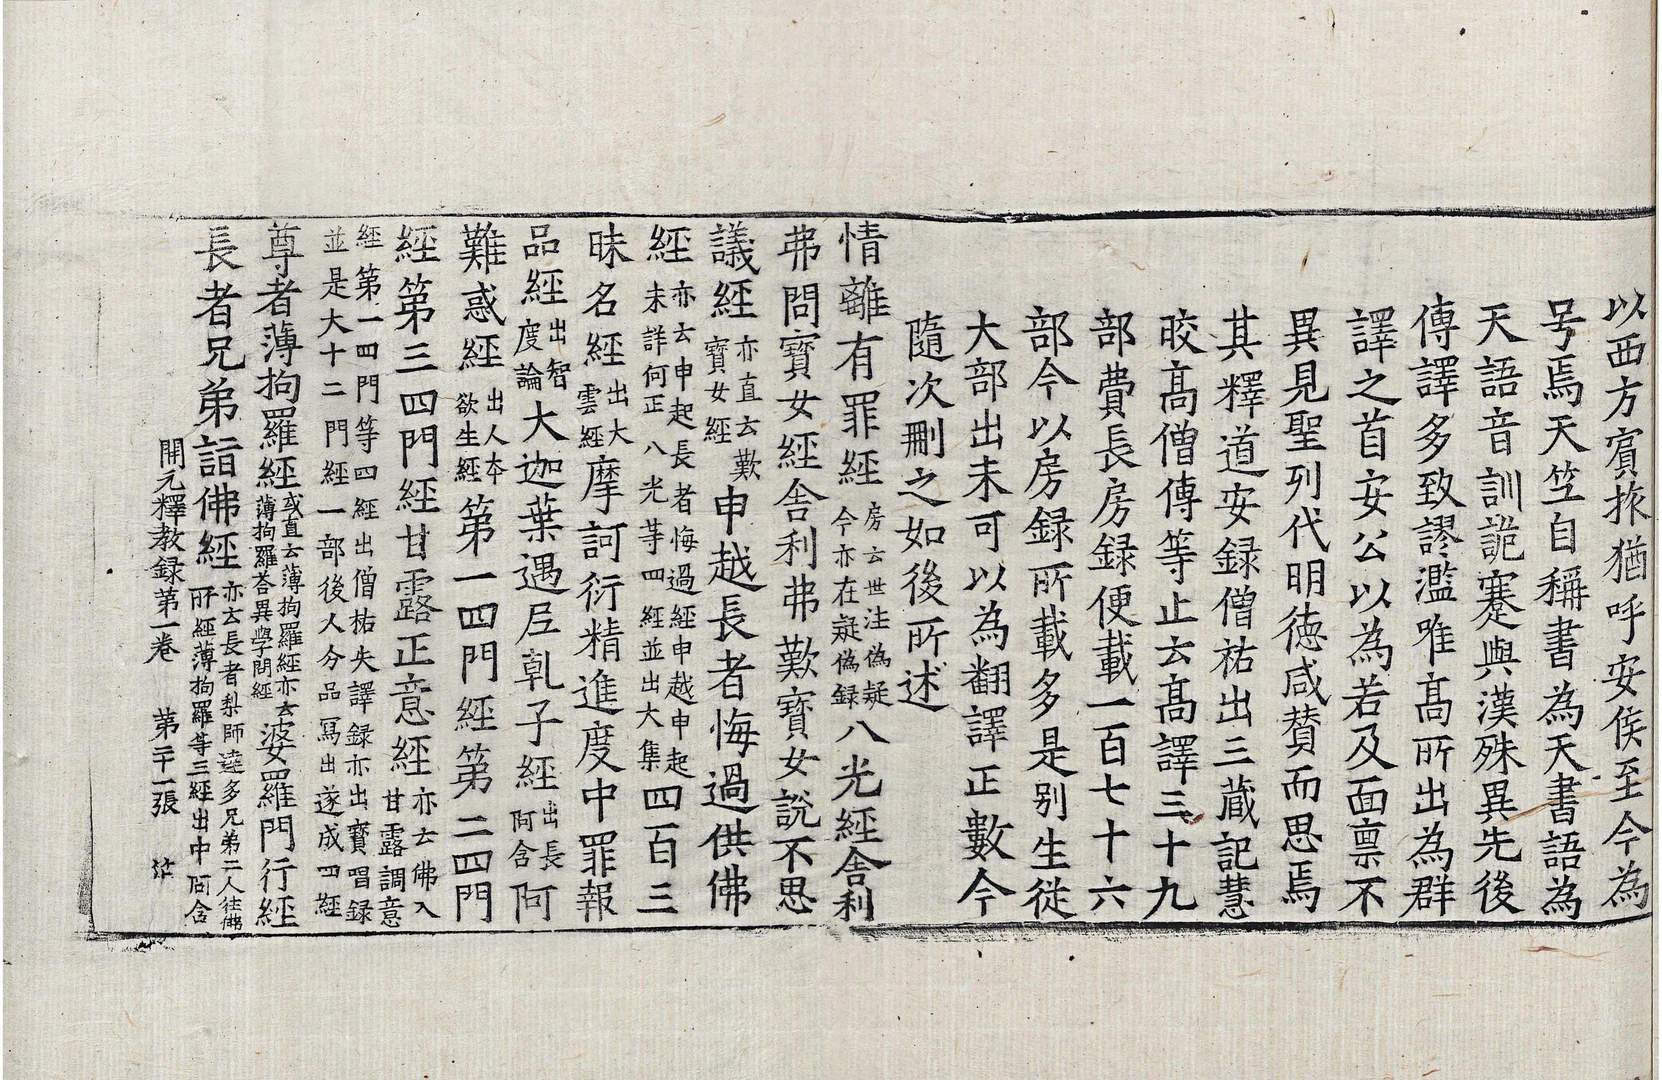 以西方賓旅猶呼安侯至今為
号焉天竺自稱書為天書語為
天語音訓詭蹇與漢殊異先後
傳譯多致謬濫唯髙所出為群
譯之首安公以為若及面禀不
異見聖列代明徳咸賛而思焉
其釋道安録僧祐出三蔵記慧
晈髙僧傳等止云髙譯三十九
部費長房録便載一百七十六
部今以房録所載多是別生從
大部出未可以為翻譯正數今
隨次刪之如後所述
情離有罪經房云世注偽疑今亦在疑偽録八光經舎利
弗問寳女經舎利弗歎寳女說不思
議經亦直云歎寳女經申越長者悔過供佛
經亦云申起長者悔過經申越申起未詳何正八光等四經並出大集四百三
昧名經出大雲經摩訶衍精進度中罪報
品經出智度論大迦葉遇尼乹子經出長阿含阿
難惑經出人夲欲生經第一四門經第二四門
經第三四門經甘露正意經亦云佛入甘露調意
經第一四門等四經出僧祐失譯録亦出寳唱録並是大十二門經一部後人分品寫出遂成四經
尊者薄拘羅經或直云薄拘羅經亦云薄拘羅荅異學問經婆羅門行經
長者兄弟詣佛經亦云長者梨師達多兄弟二人往佛所經薄拘羅等三經出中阿含
開元釋教録第一卷　第二十一張